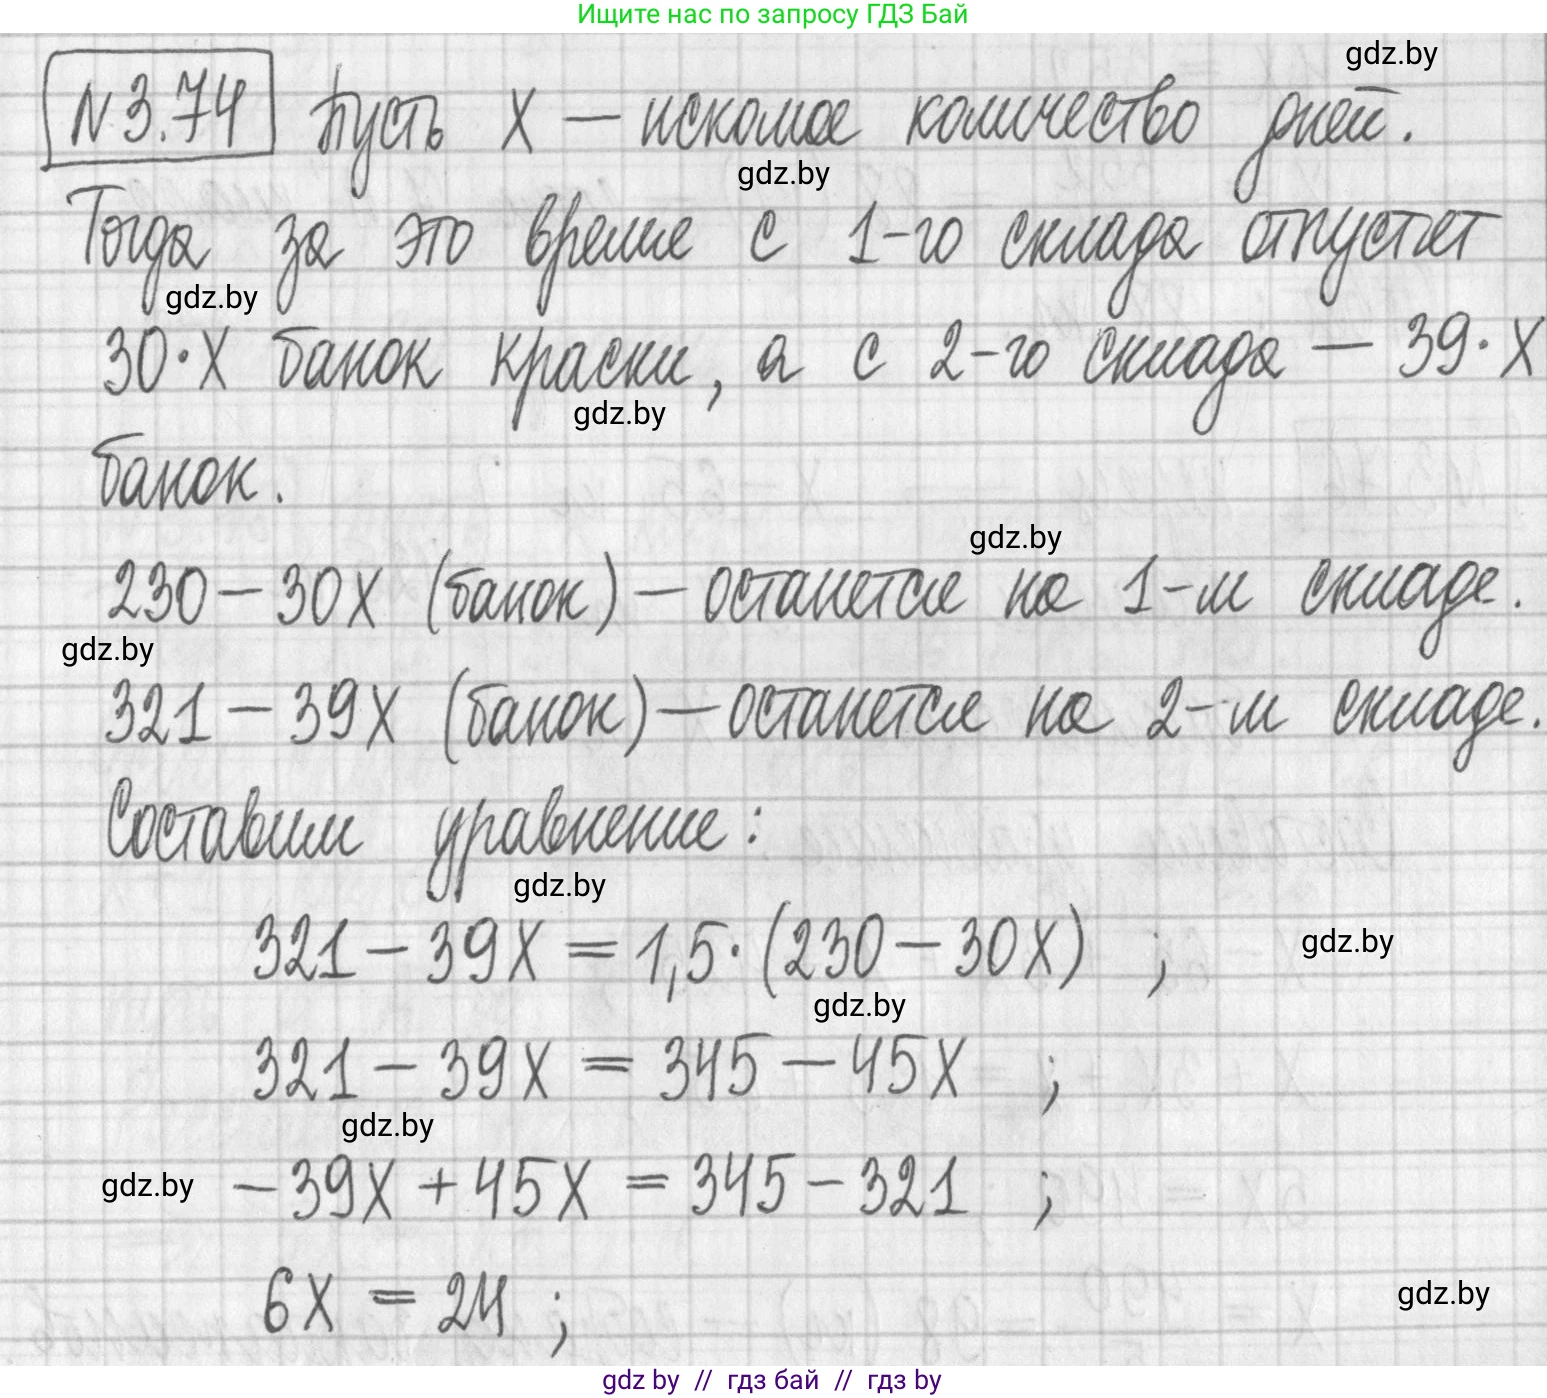 Ищите нас по запросу ГДЗ Бай
gdz.by
N 3.74 Пусть X — искомое количество дней.
gdz.by
Тогда за это время с 1-го склада отпустят
gdz.by
30·X банок краски, а с 2-го склада — 39·X
gdz.by
банок.
gdz.by
230 — 30X (банок) — останется на 1-м складе.
gdz.by
321 — 39X (банок) — останется на 2-м складе.
Составим уравнение:
gdz.by
321 — 39X = 1,5·(230 — 30X) ;
gdz.by
gdz.by
321 — 39X = 345 — 45X ;
gdz.by
gdz.by
— 39X + 45X = 345 — 321 ;
6X = 24 ;
gdz.by
gdz by // гдз бай // гдз by